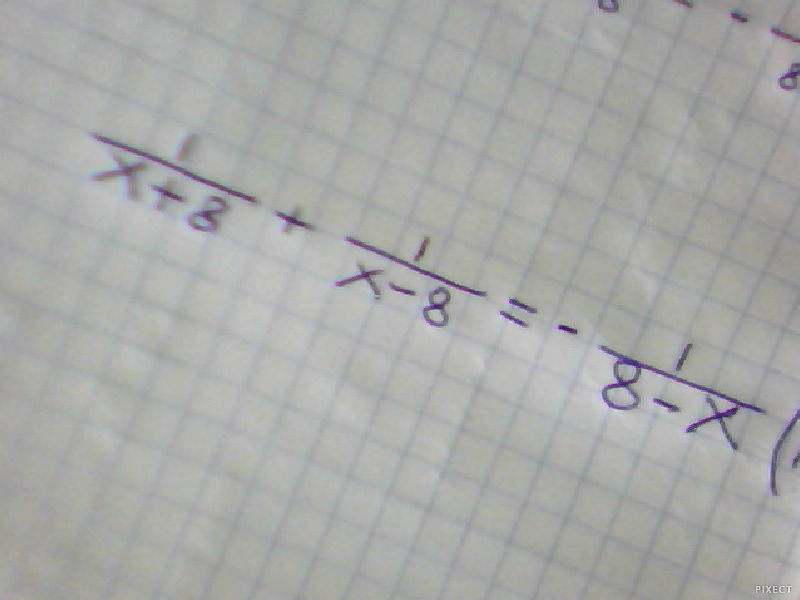 8
1/(x+8) + 1/(x-8) = - 1/(8-x) (
PIXECT